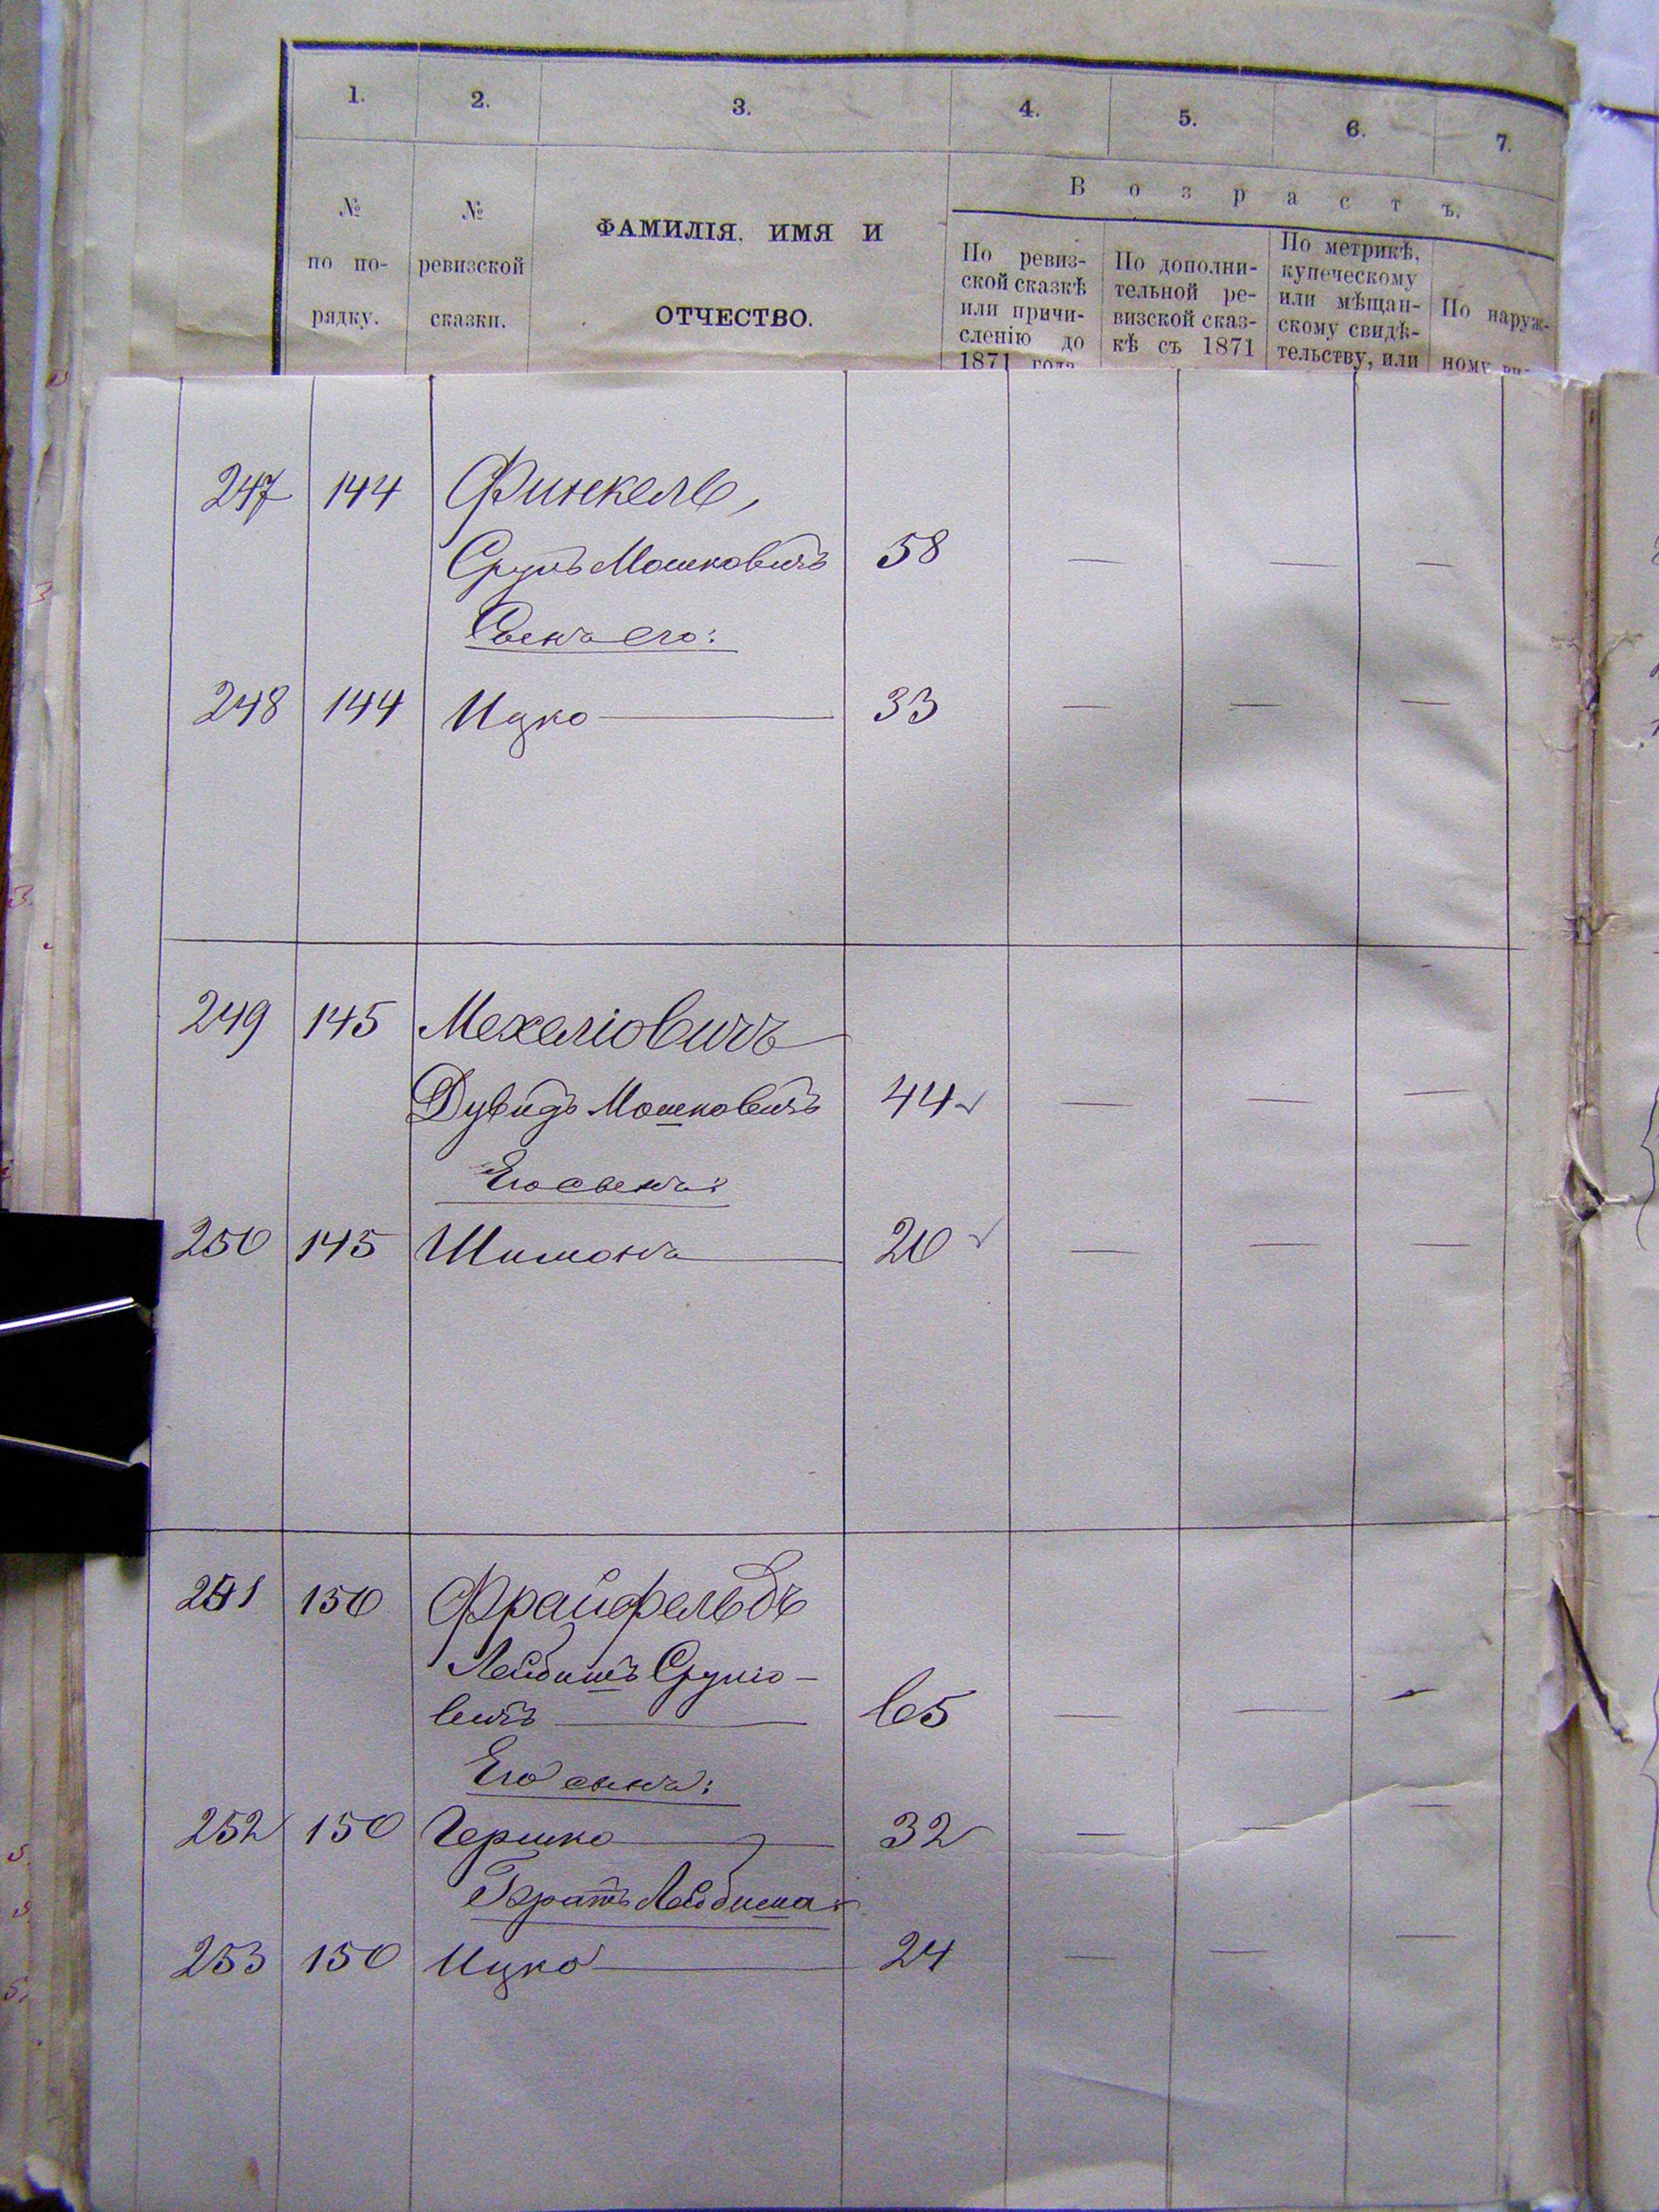 1. 2. 3. 4. 5. 6. 7.
В о з р а с т ъ.
№ по по-рядку.
№ ревизской сказки.
ФАМИЛІЯ, ИМЯ И
ОТЧЕСТВО.
По ревиз-
ской сказкѣ
или причи-
сленію до
1871 года
По дополни-
тельной ре-
визской сказ-
кѣ съ 1871
По метрикѣ,
купеческому
или мѣщан-
скому свидѣ-
тельству, или
По наруж-
ному ви-
247 144 Финкель,
Сруль Мошковичъ 58 — — —
Сынъ его:
248 144 Ицко — 33 — — —
249 145 Мехеліовичъ
Дувидъ Мошковичъ 44 ✓ — — —
Его сынъ:
250 145 Шимонъ — 20 ✓ — — —
251 150 Фрайфельдъ
Лейбишъ Сруліо-
вичъ — 65 — — —
Его сынъ:
252 150 Гершко — 32 — — —
Братъ Лейбиша:
253 150 Ицко — 24 — — —